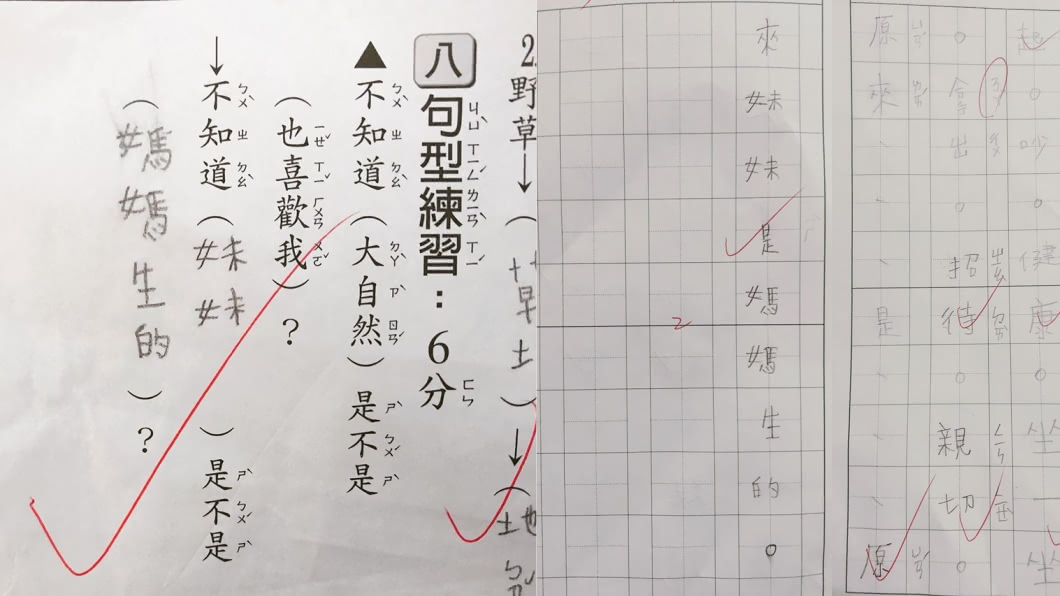 2.野草→(艹早土)→(土也
八 句型練習：6分
▲不知道(大自然)是不是
(也喜歡我)？
↓不知道(妹妹)是不是
(媽媽生的)？
來妹妹是媽媽生的。
2
起。吵。健康。坐一坐
。拿出多。招待。親切。
原來、、是、、、原